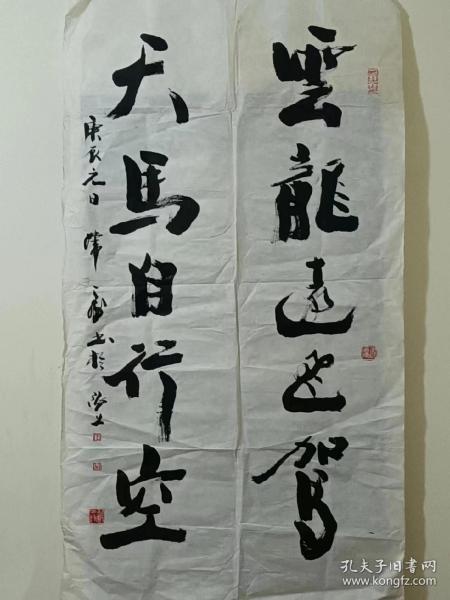 雲龍遠飛駕
天馬自行空
庚辰元日 书於
孔夫子旧书网
www.kongfz.com